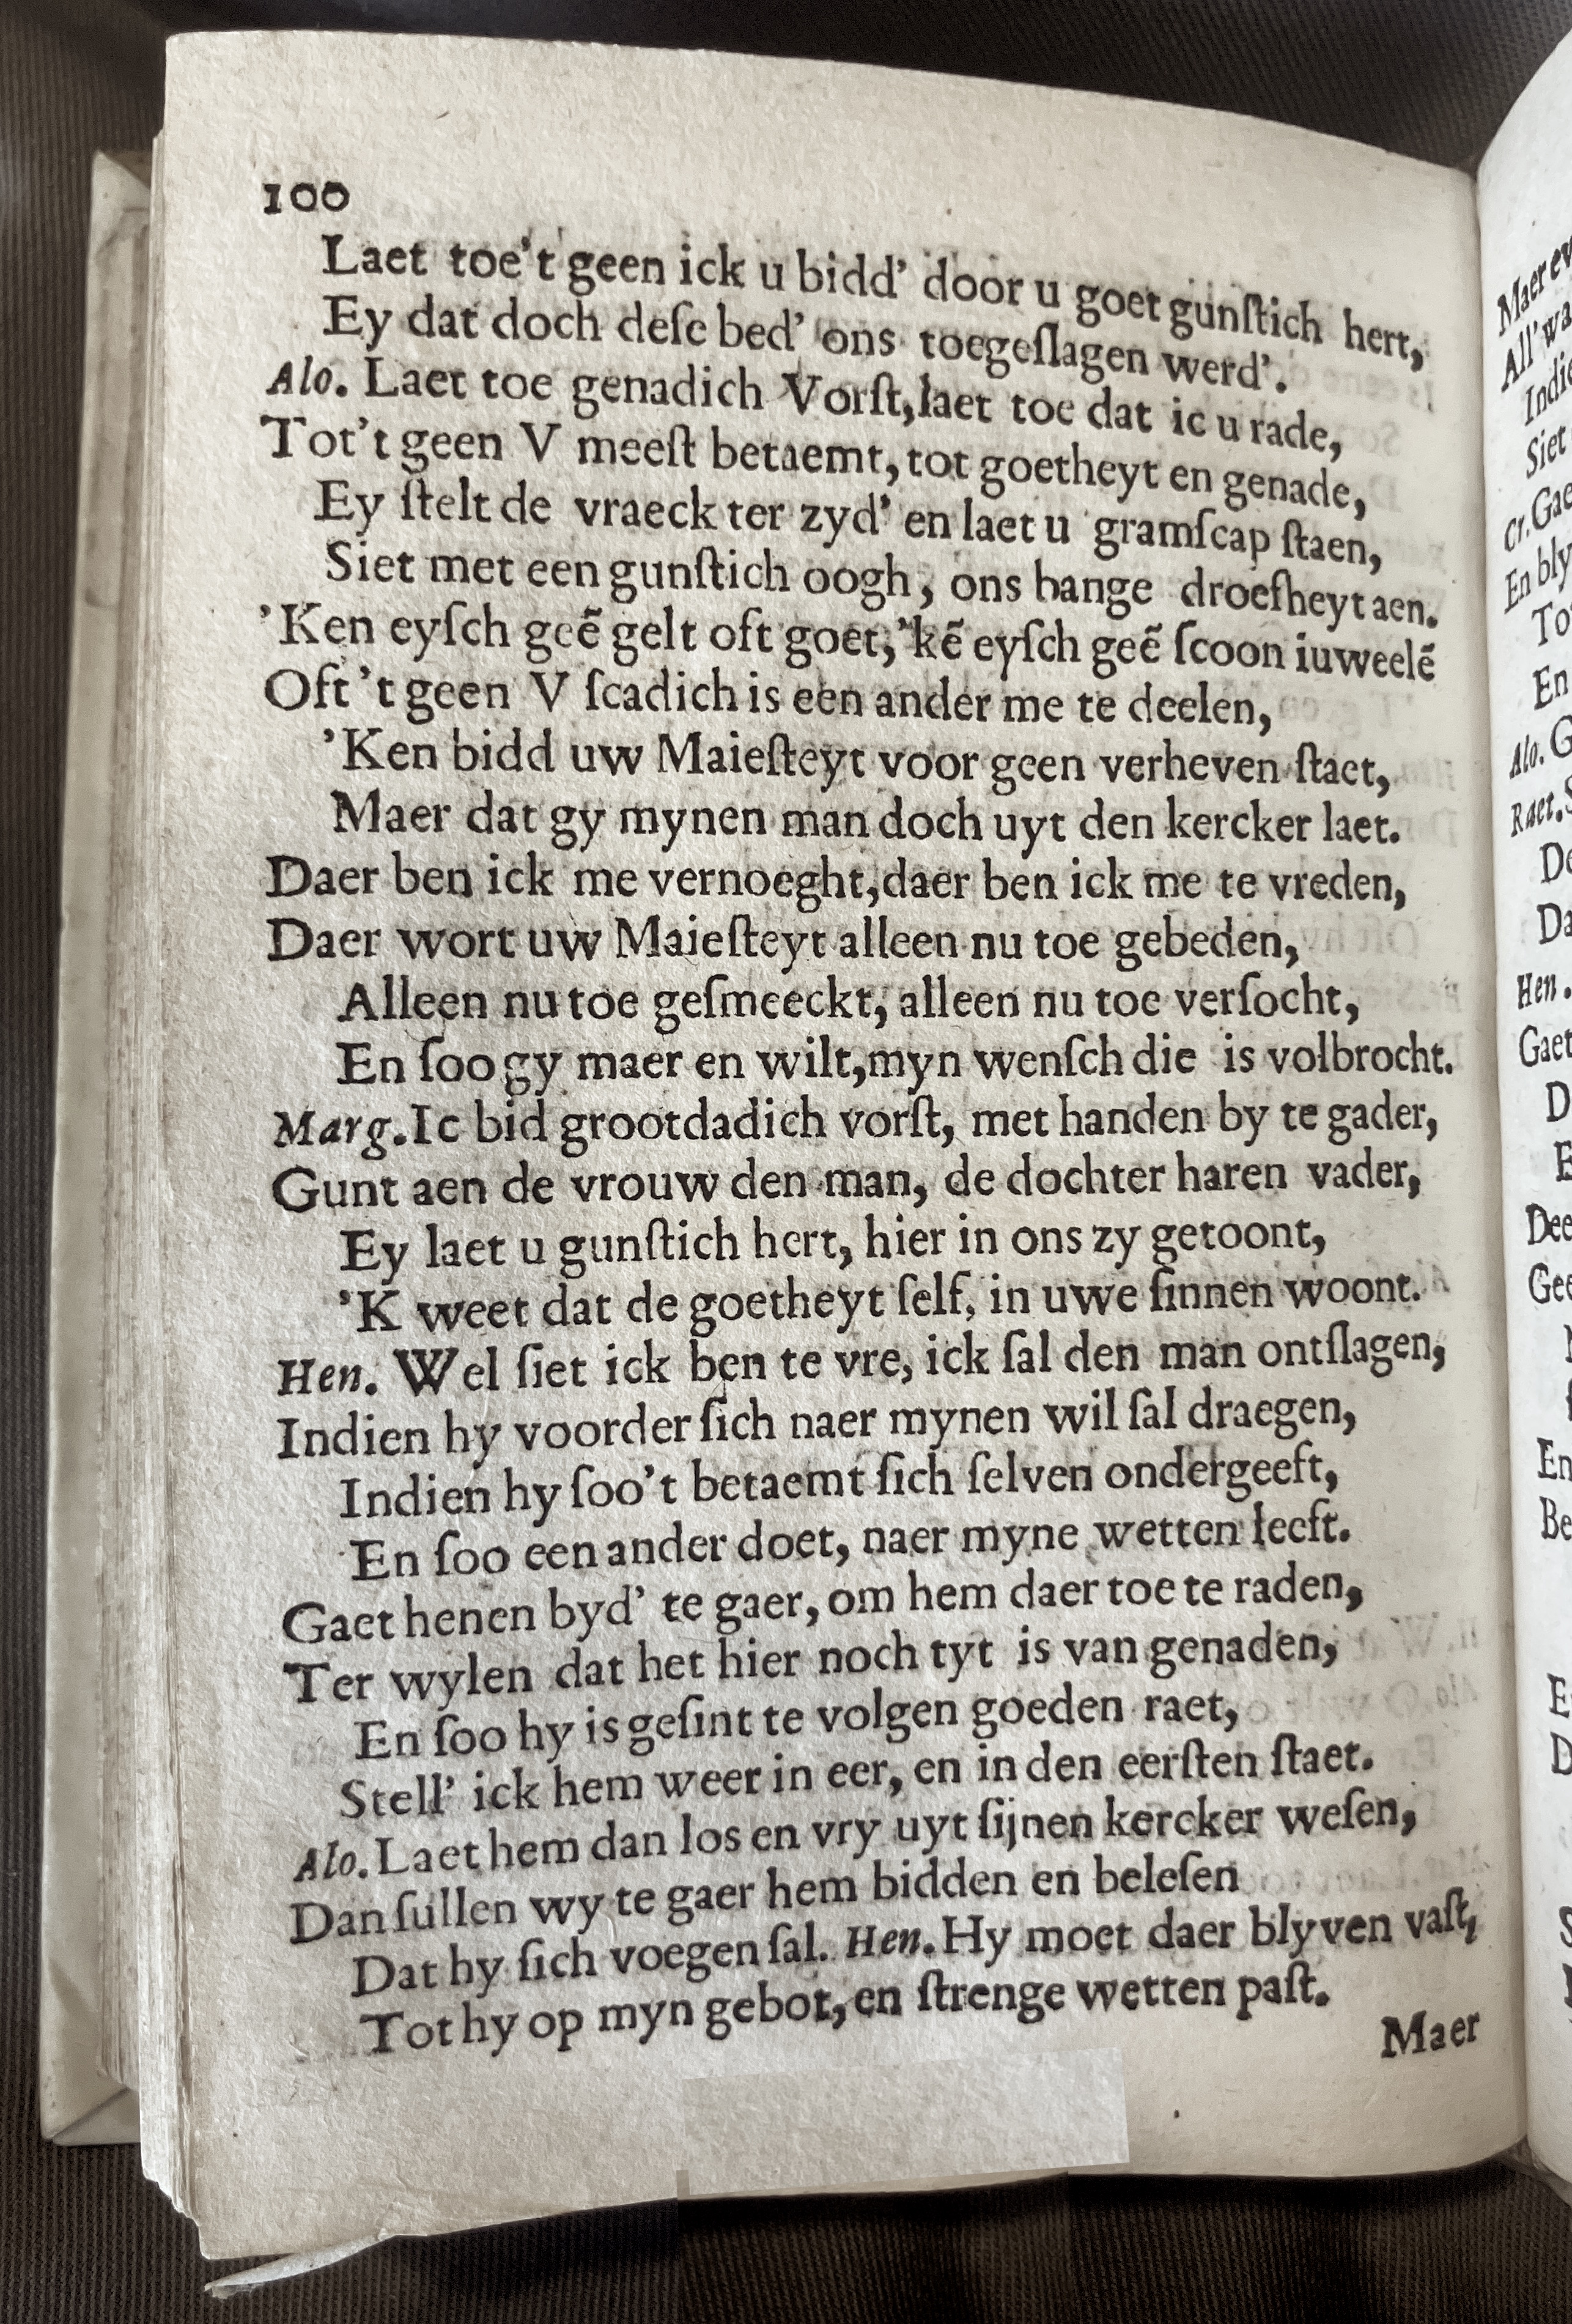 100
Laet toe't geen ick u bidd' door u goet gunſtich hert,
Ey dat doch deſe bed' ons toegeſlagen werd'.
Alo. Laet toe genadich Vorſt, laet toe dat ic u rade,
Tot't geen V meeſt betaemt, tot goetheyt en genade,
Ey ſtelt de vraeck ter zyd' en laet u gramſcap ſtaen,
Siet met een gunſtich oogh, ons bange droefheyt aen.
'Ken eyſch geẽ gelt oft goet, 'kẽ eyſch geẽ ſcoon iuweelẽ
Oft 't geen V ſcadich is een ander me te deelen,
'Ken bidd uw Maieſteyt voor geen verheven ſtaet,
Maer dat gy mynen man doch uyt den kercker laet.
Daer ben ick me vernoeght, daer ben ick me te vreden,
Daer wort uw Maieſteyt alleen nu toe gebeden,
Alleen nu toe geſmeeckt, alleen nu toe verſocht,
En ſoo gy maer en wilt, myn wenſch die is volbrocht.
Marg. Ic bid grootdadich vorſt, met handen by te gader,
Gunt aen de vrouw den man, de dochter haren vader,
Ey laet u gunſtich hert, hier in ons zy getoont,
'K weet dat de goetheyt ſelf, in uwe ſinnen woont.
Hen. Wel ſiet ick ben te vre, ick ſal den man ontſlagen,
Indien hy voorder ſich naer mynen wil ſal draegen,
Indien hy ſoo't betaemt ſich ſelven ondergeeft,
En ſoo een ander doet, naer myne wetten leeft.
Gaet henen byd' te gaer, om hem daer toe te raden,
Ter wylen dat het hier noch tyt is van genaden,
En ſoo hy is geſint te volgen goeden raet,
Stell' ick hem weer in eer, en in den eerſten ſtaet.
Alo. Laet hem dan los en vry uyt ſijnen kercker weſen,
Dan ſullen wy te gaer hem bidden en beleſen
Dat hy ſich voegen ſal. Hen. Hy moet daer blyven vaſt,
Tot hy op myn gebot, en ſtrenge wetten paſt.
Maer